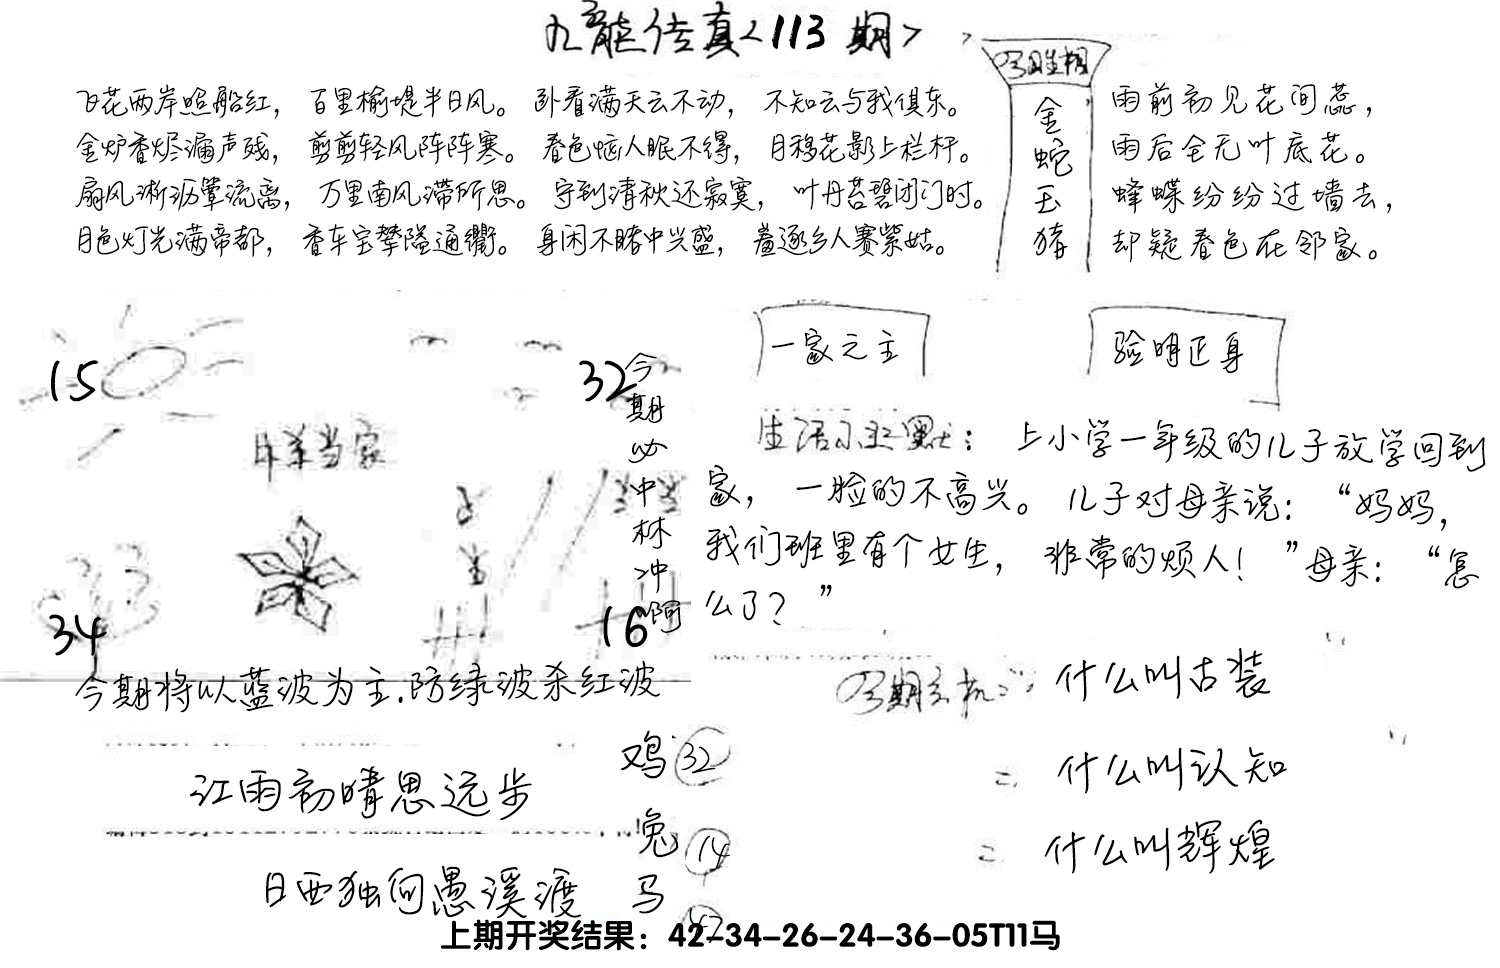 九龍传真<113期>
飞花两岸照船红，百里榆堤半日风。卧看满天云不动，不知云与我俱东。
金炉香烬漏声残，剪剪轻风阵阵寒。春色恼人眠不得，月移花影上栏杆。
扇风淅沥簟流离，万里南风滞所思。守到清秋还寂寞，叶丹苔碧闭门时。
月色灯光满帝都，香车宝辇隘通衢。身闲不睹中兴盛，羞逐乡人赛紫姑。
今日生相
金蛇玉猪
雨前初见花间蕊，
雨后全无叶底花。
蜂蝶纷纷过墙去，
却疑春色在邻家。
15
32
当家
34
16
今期必中林冲啊
今期将以蓝波为主.防绿波杀红波
一家之主
验明正身
生活小幽默：上小学一年级的儿子放学回到
家，一脸的不高兴。儿子对母亲说：“妈妈，
我们班里有个女生，非常的烦人！”母亲：“怎
么了？”
今期玄机：什么叫古装
二 什么叫认知
二 什么叫辉煌
江雨初晴思远步
日西独向愚溪渡
鸡 32
兔 14
马
上期开奖结果：42-34-26-24-36-05T11马